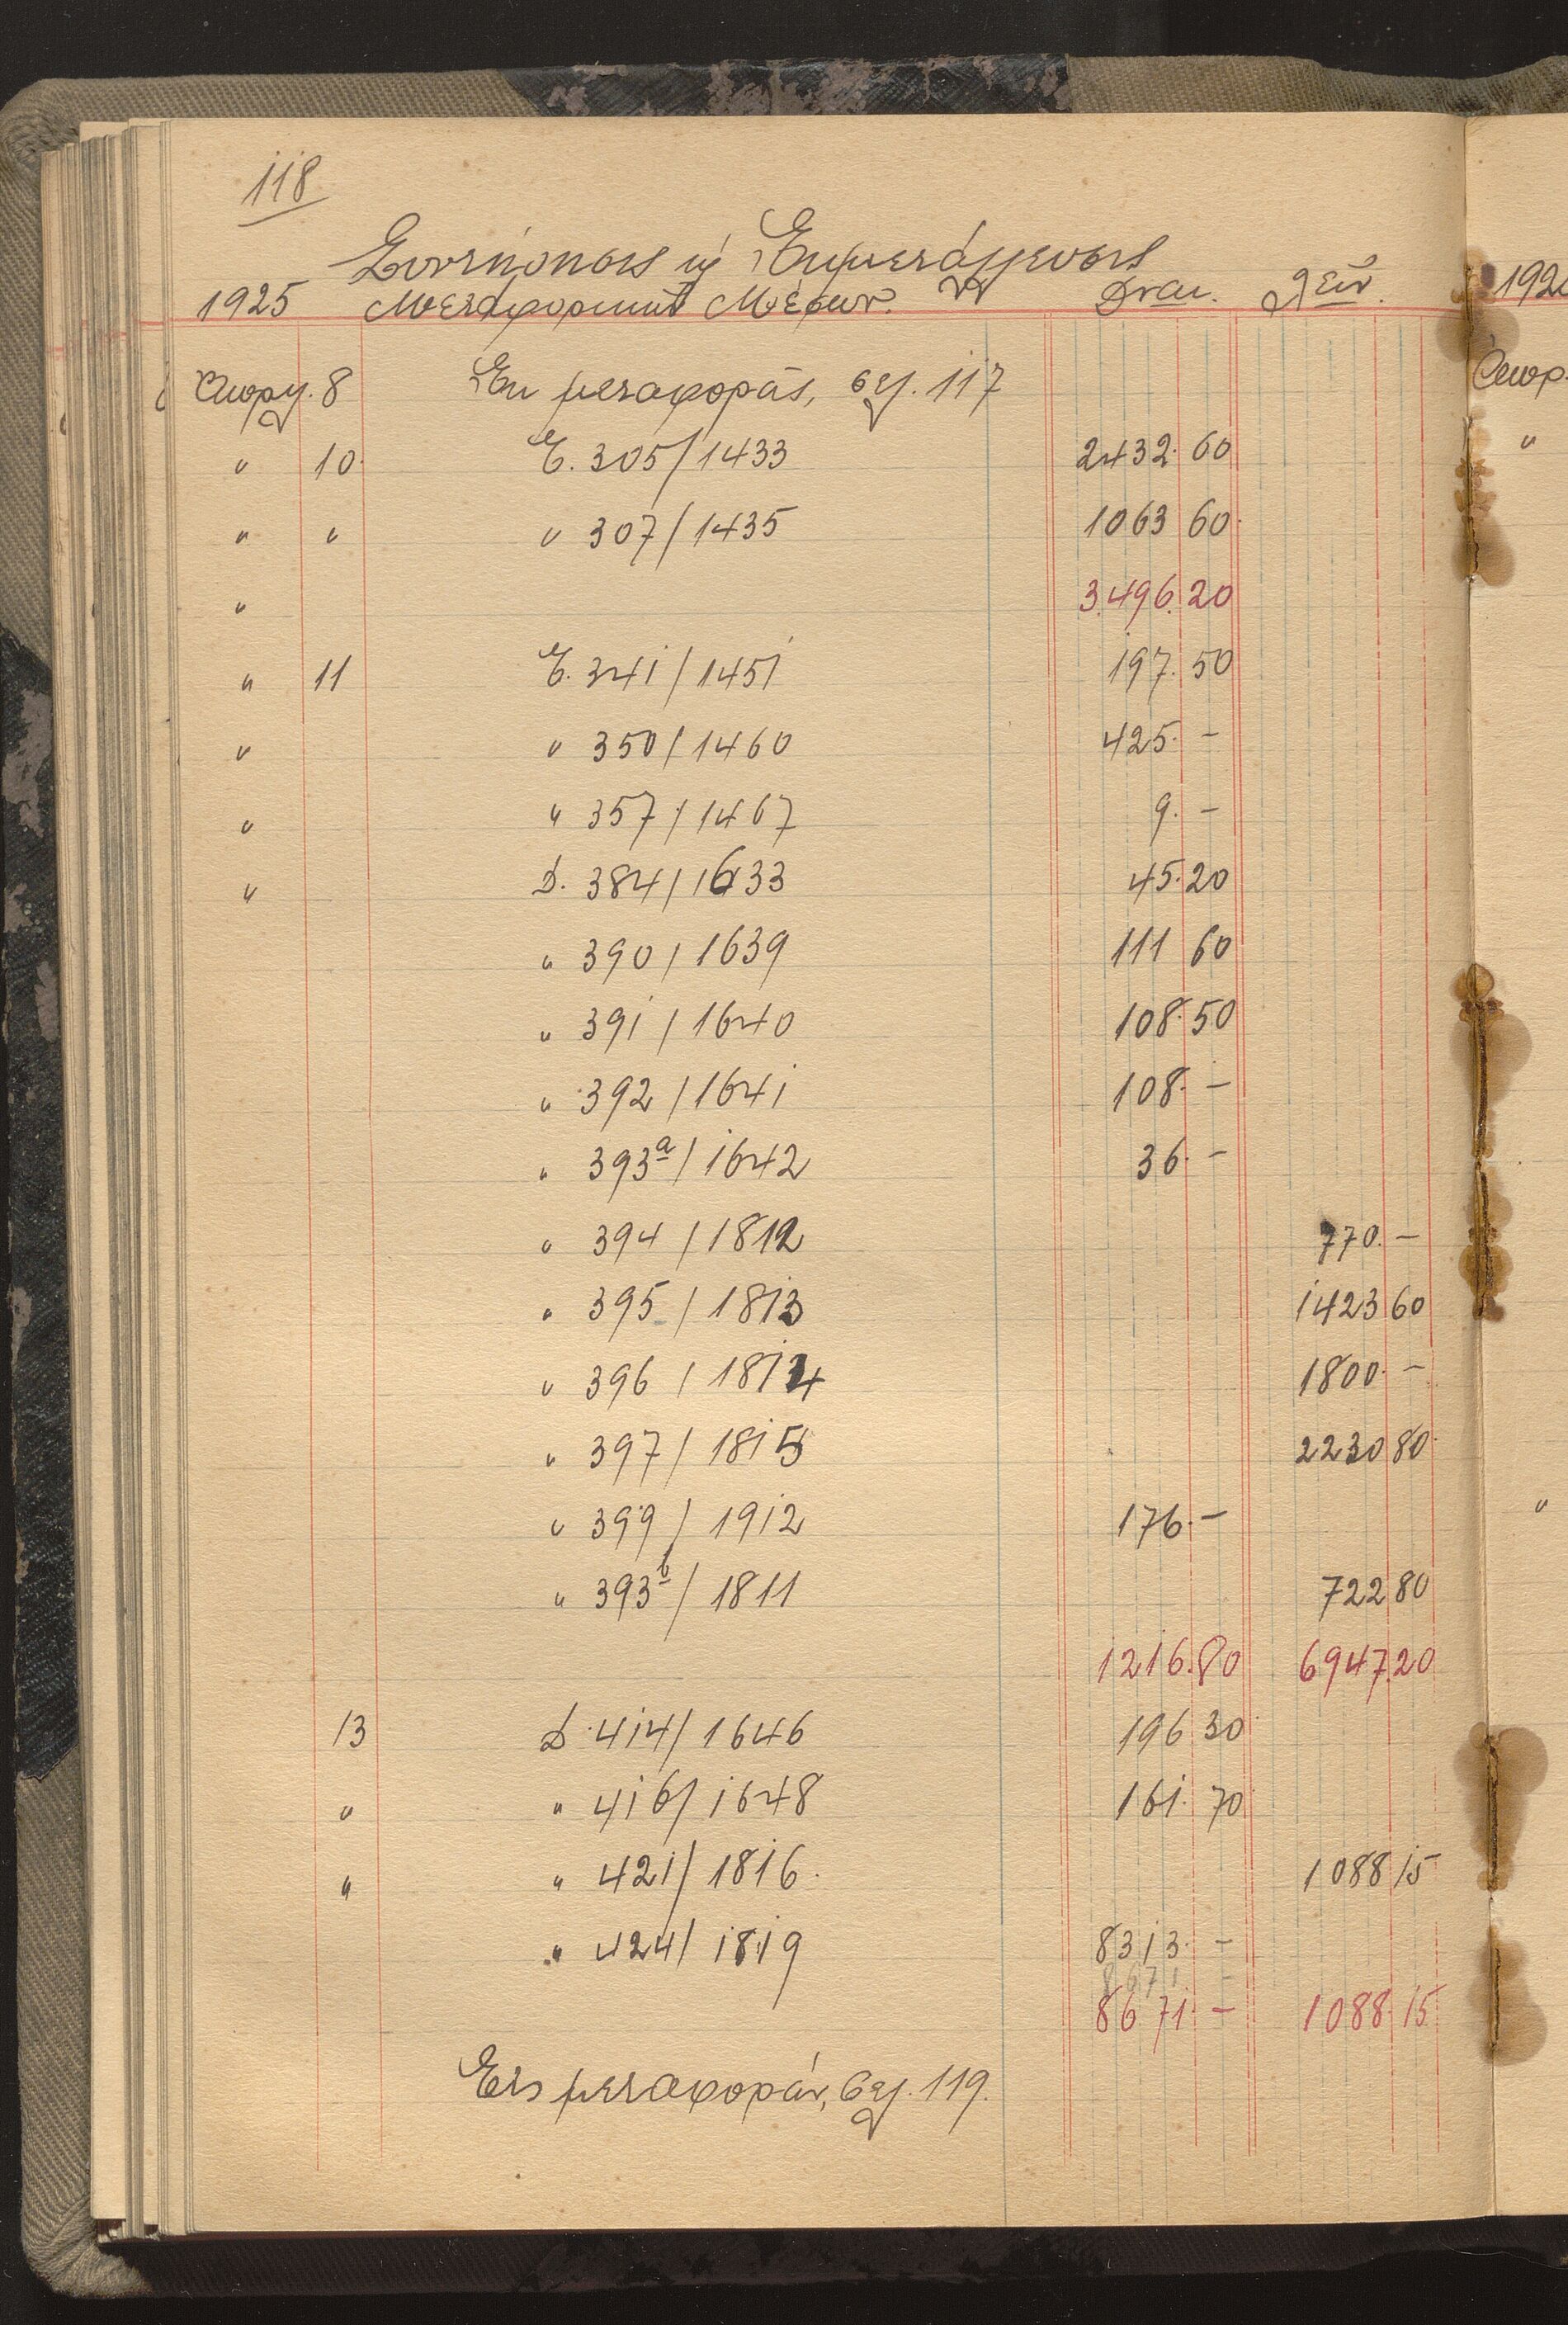 118
Συντήρησις κ Εκμετάλλευσις
1925 Μεταφορικών Μέσων. Δναι. Λεϊν. 192
Απριλ. 8 Εκ μεταφοράς, σελ. 117
" 10 Ε. 305/1433 2432. 60
" " " 307/1435 1063 60
" 3.496.20
" 11 Ε. 341/1451 197. 50
" " 350/1460 425. -
" " 357/1467 9. -
" D. 384/1633 45. 20
" 390/1639 111 60
" 391/1640 108. 50
" 392/1641 108. -
" 393a/1642 36. -
" 394/1812 770. -
" 395/1813 1423 60
" 396/1814 1800. -
" 397/1815 2230 80
" 399/1912 176. -
" 393b/1811 722 80
1216.80 6947.20
13 D. 414/1646 196 30
" " 416/1648 161. 70
" " 421/1816. 1088 15
" 424/1819 8313. -
8671 -
8671. - 1088. 15
Εις μεταφοράν, σελ. 119.